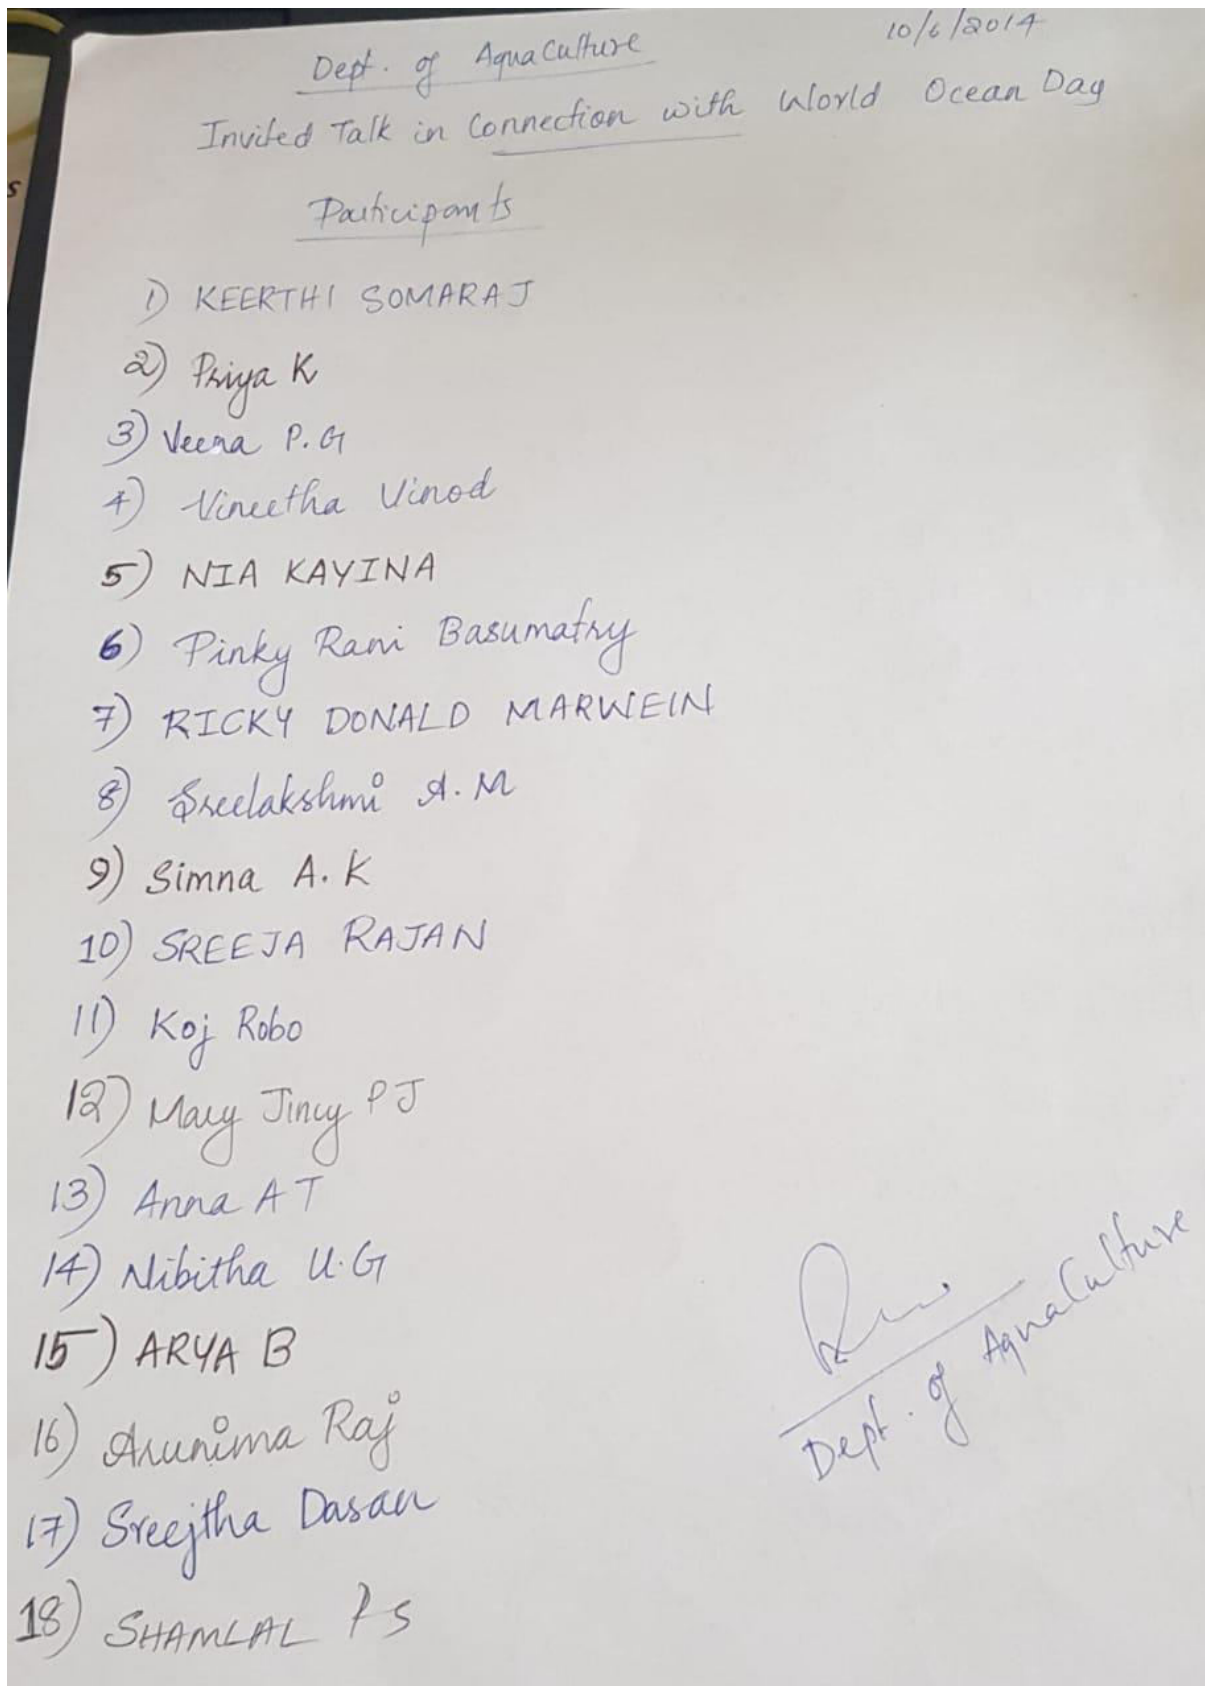 10/6/2014
Dept. of Aquaculture
Invited Talk in Connection with World Ocean Day
Participants
1) KEERTHI SOMARAJ
2) Priya K
3) Veena P.G
4) Vineetha Vinod
5) NIA KAYINA
6) Pinky Rani Basumatry
7) RICKY DONALD MARWEIN
8) Sreelakshmi A.M
9) Simna A.K
10) SREEJA RAJAN
11) Koj Robo
12) Mary Jincy P J
13) Anna A T
14) Nibitha U.G
15) ARYA B
16) Arunima Raj
17) Sreejtha Dasan
18) SHAMLAL P S
Dept. of Aquaculture